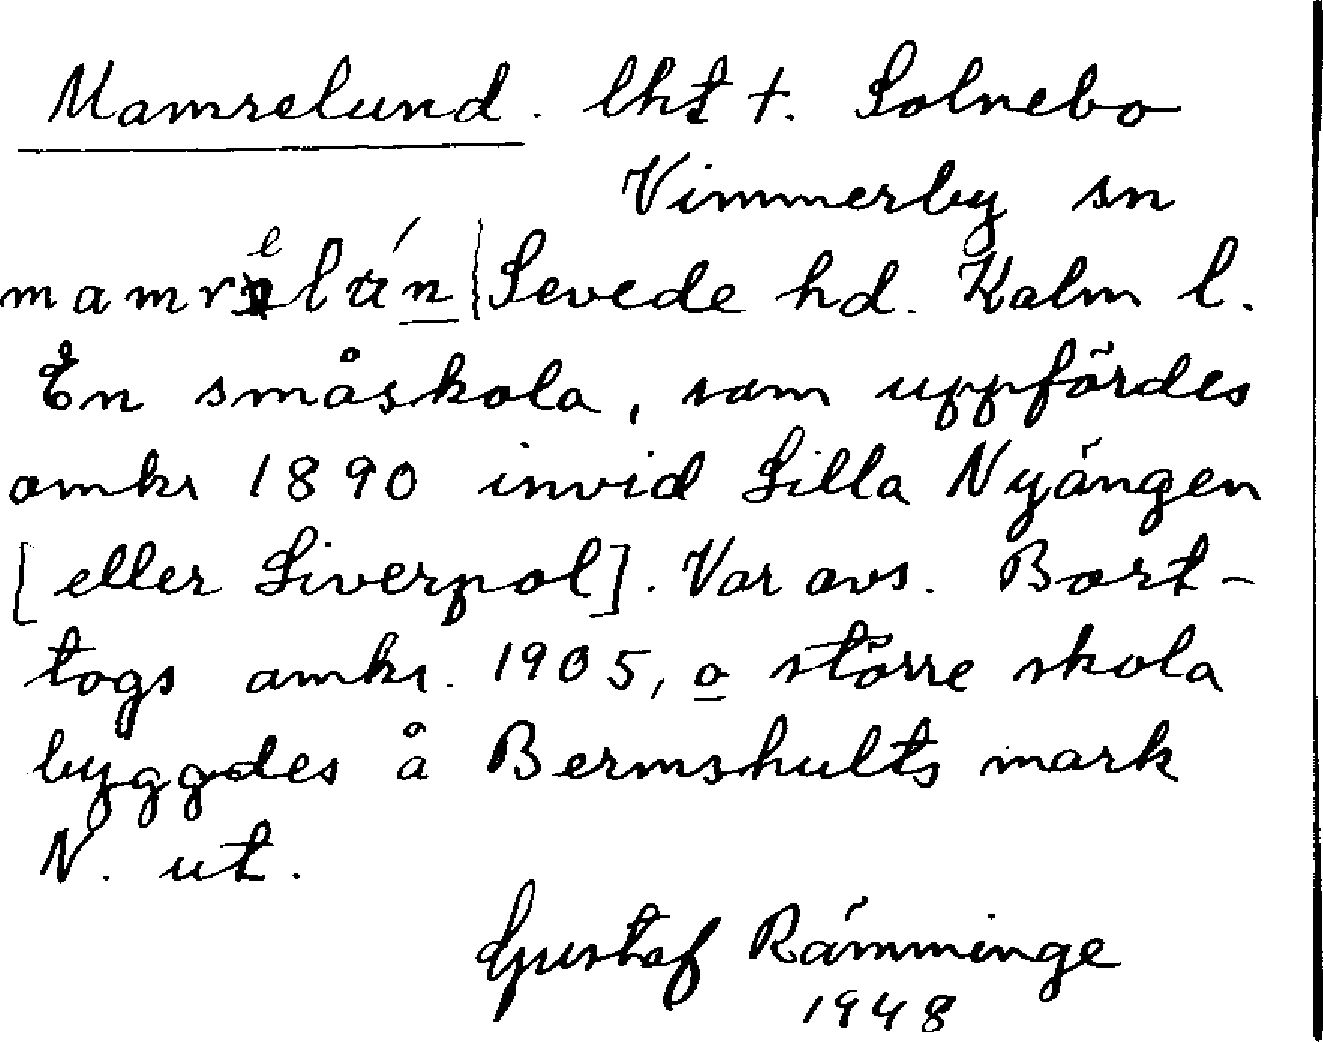 Mamrelund. lht t. Solnebo
Vimmerby sn
mamrelún | Sevede hd. Kalm l.
En småskola, som uppfördes
omkr 1890 invid Lilla Nyängen
[eller Liverpol]. Var avs. Bort-
togs omkr. 1905, o större skola
byggdes å Bermshults mark
N. ut.
Gustaf Rämminge
1948